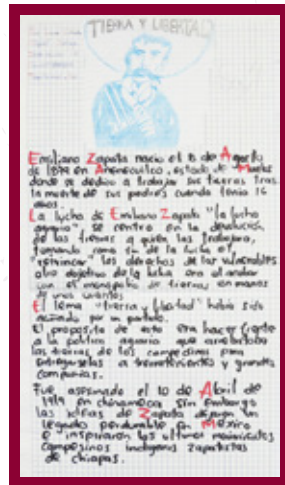 TIERRA Y LIBERTAD
Emiliano Zapata nacio el 8 de Agosto
de 1879 en Anenecuilco, estado de Morelos
donde se dedico a trabajar sus tierras tras
la muerte de sus padres cuando tenia 16
años.
La lucha de Emiliano Zapata "la lucha
agraria", se centro en la devolución
de las tierras a quien las trabajara,
tomando como fin de la lucha el
los derechos de los vulnerables
otro objetivo de la lucha era el acabar
con el monopolio de tierras en manos
de unos cuantos
El lema "tierra y libertad" habia sido
acuñado por un partido.
El proposito de esto era hacer frente
a la politica agraria que arrebataba
las tierras de los campesinos para
entregarselas a terratenientes y grandes
compañias.
Fue asesinado el 10 de Abril de
1919 en chinameca sin embargo
las ideas de Zapata dejaron un
legado perdurable en México
e inspiraron los ultimos movimientos
campesinos indigenas zapatistas
de chiapas.